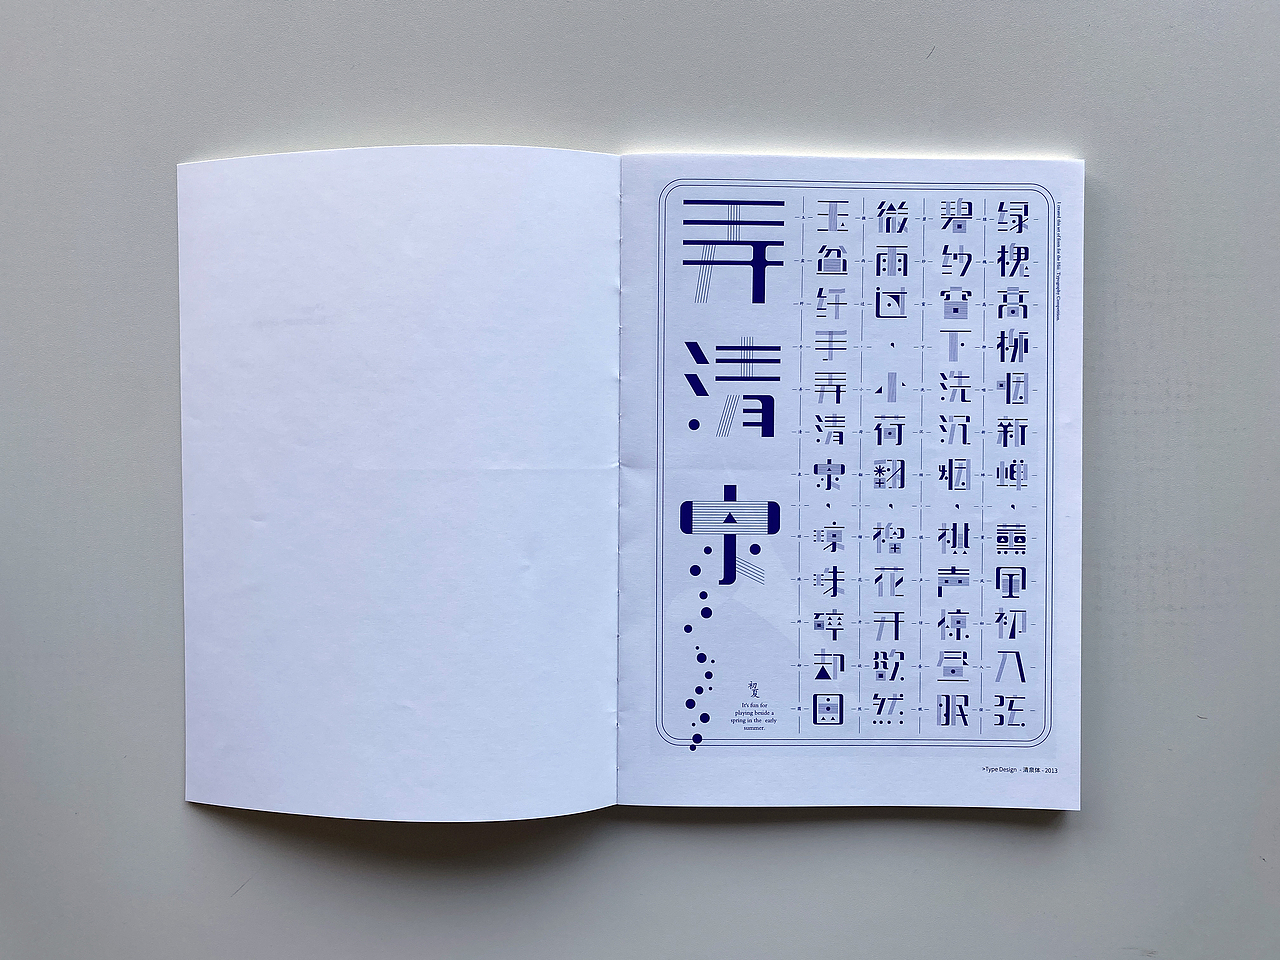 绿槐高柳咽新蝉，薰风初入弦
碧纱窗下洗沉烟，棋声惊昼眠
微雨过，小荷翻，榴花开欲然
玉盆纤手弄清泉，琼珠碎却圆
弄清泉
初夏
It's fun for
playing beside a
spring in the early
summer.
I created this set of fonts for the Typography Competition.
>Type Design - 清泉体 - 2013